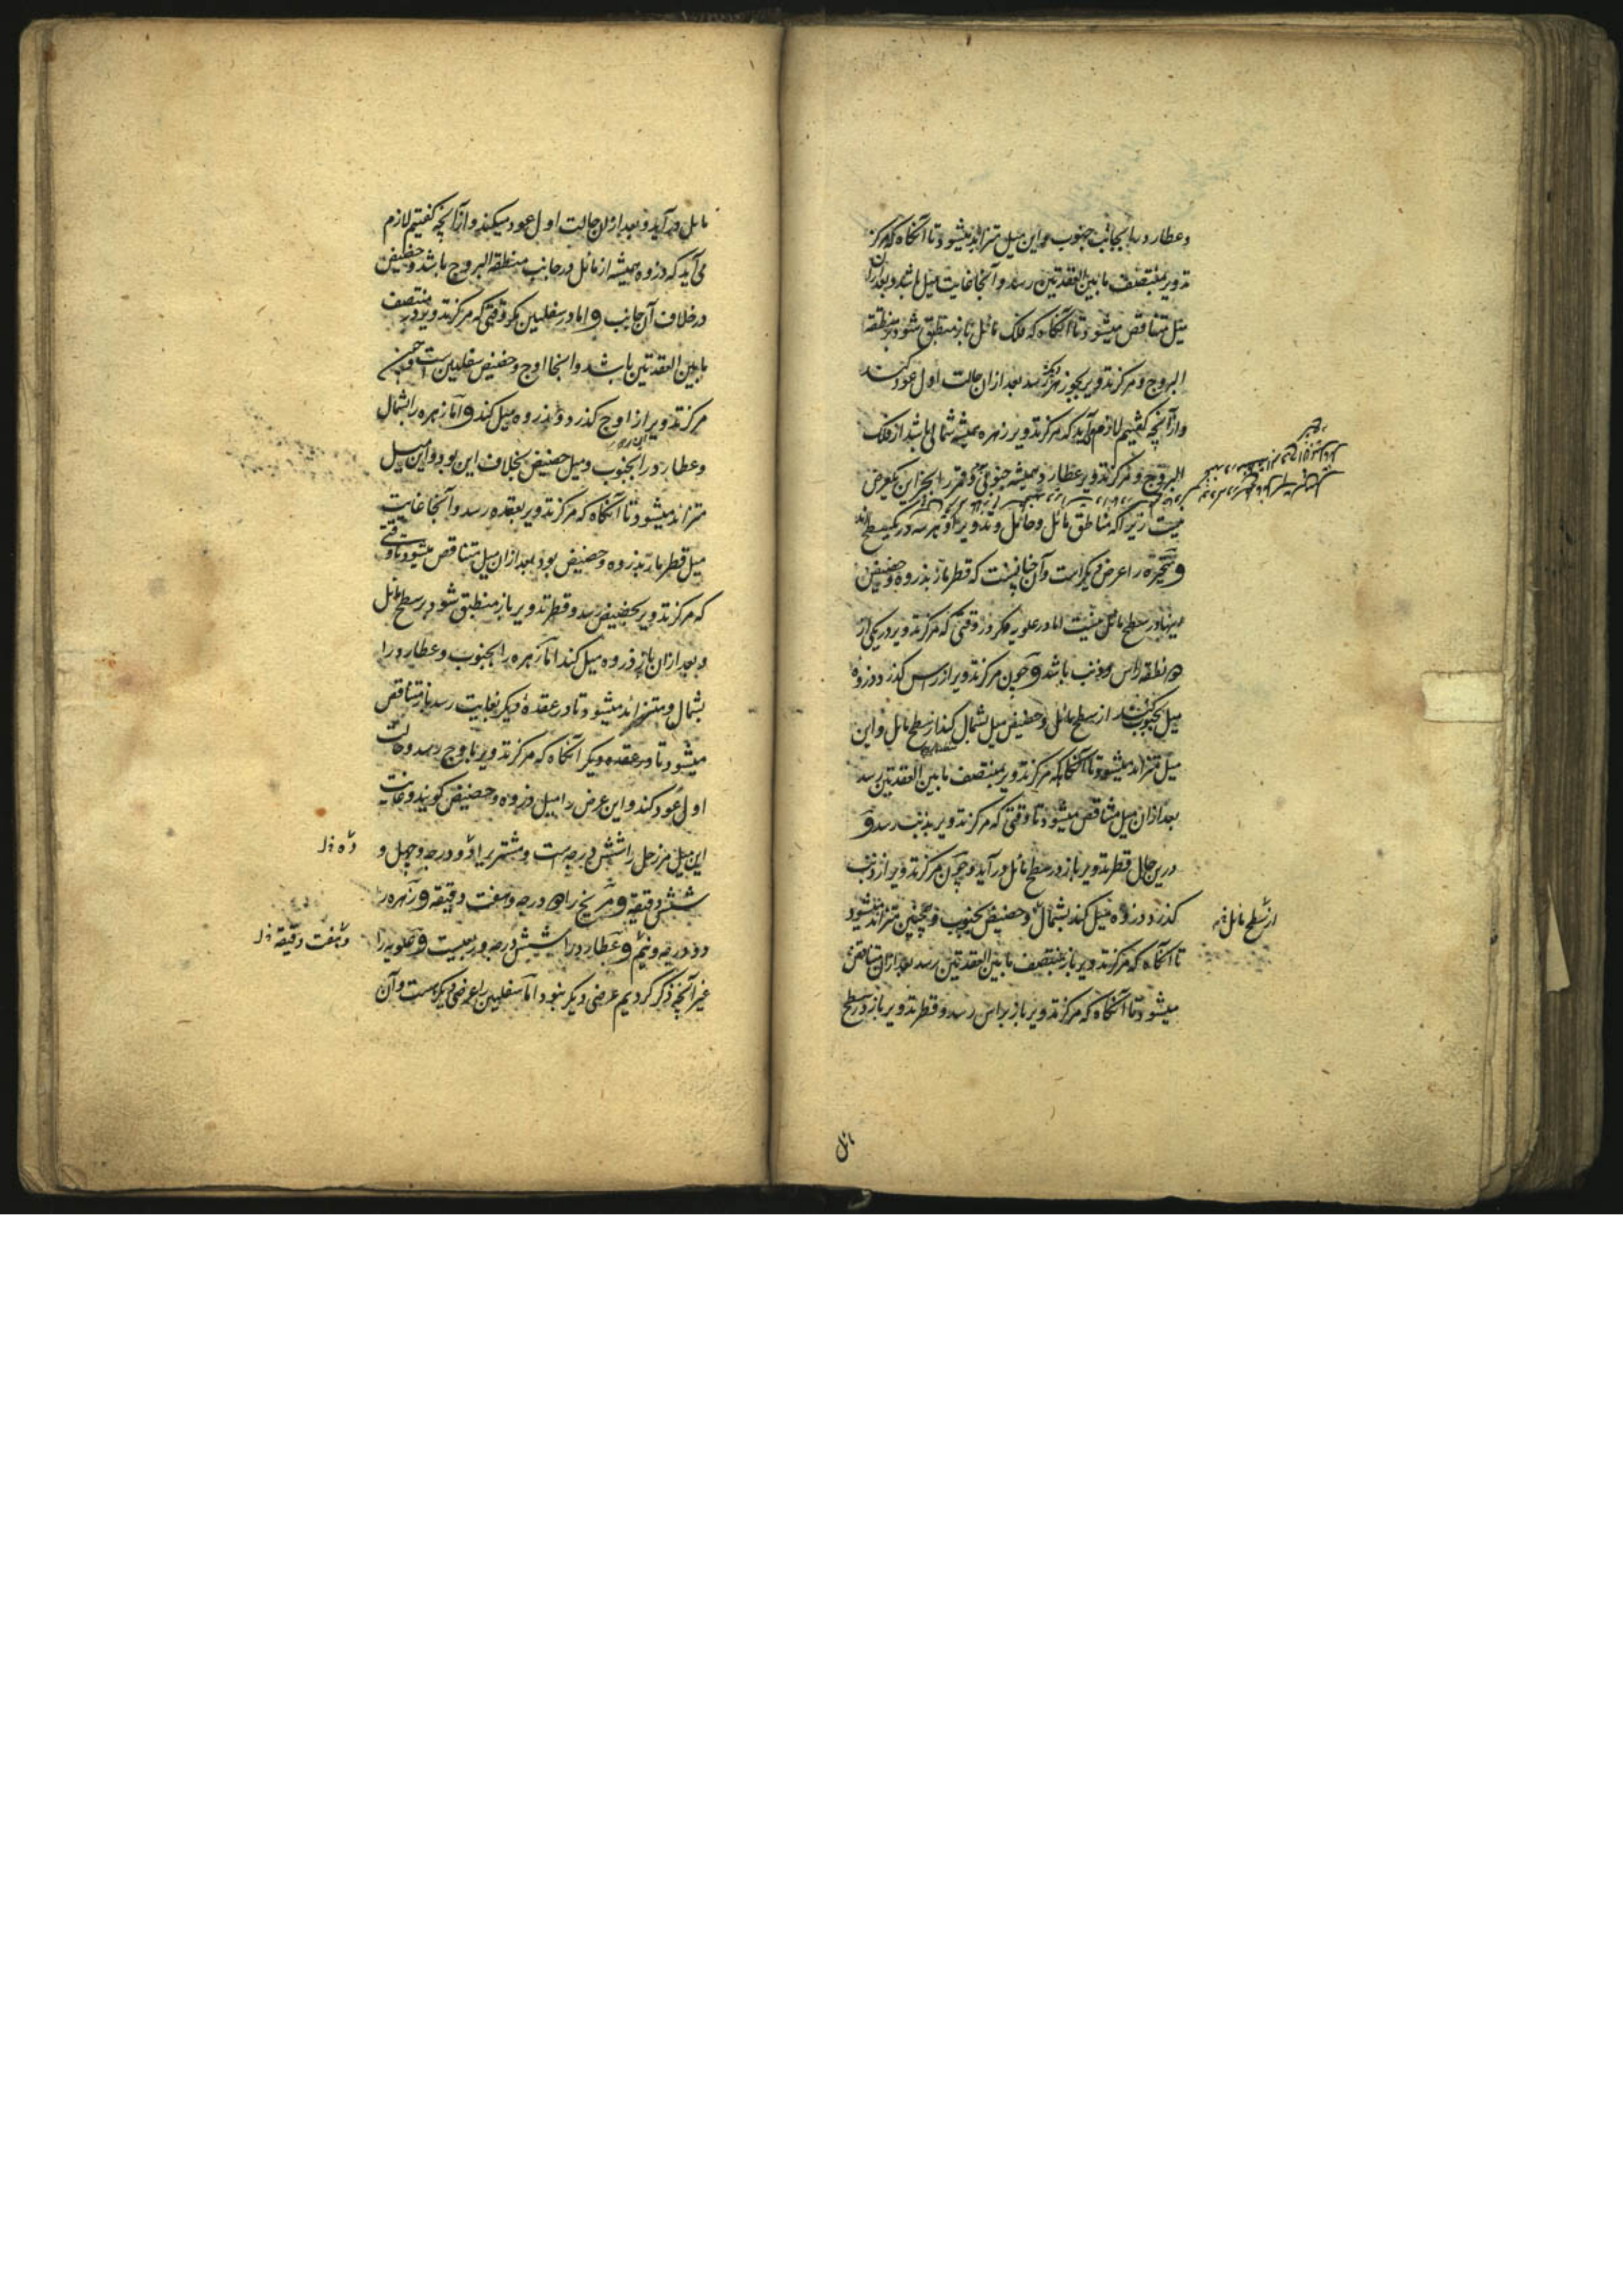 و عطارد را بجانب جنوب و این میل متزاید میشود تا آنگاه که مرکز
تدویر بمنتصف ما بین العقدتین رسد و آنجا غایت میل باشد و بعد ازان
میل متناقص میشود تا آنگاه که فلک مائل باز منطبق شود بر منطقة
البروج و مرکز تدویر بجوزهر دیگر رسد بعد ازان حالت اول عود کند
و از آنچه گفتیم لازم می آید که مرکز تدویر زهره همیشه شمالی باشد از فلک
البروج و مرکز تدویر عطارد همیشه جنوبی و قمر را بجز این یک عرض
نیست زیرا که مناطق مائل و حامل و تدویر او هر سه در یک سطح اند
و متحیره را عرض دیگر است و آن چنانست که قطر مار بذروه و حضیض
اینها در سطح مائل نیست اما در علویه مگر در وقتی که مرکز تدویر در یکی از
دو نقطه راس و ذنب باشد و چون مرکز تدویر از راس گذرد ذروه
میل بجنوب کند از سطح مائل و حضیض میل بشمال کند از سطح مائل و این
میل متزاید میشود تا آنگاه که مرکز تدویر بمنتصف ما بین العقدتین رسد
بعد ازان میل متناقص میشود تا وقتی که مرکز تدویر بذنب رسد و
درین حال قطر تدویر باز در سطح مائل در آید و چون مرکز تدویر از ذنب
گذرد ذروه میل کند بشمال و حضیض بجنوب و همچنین متزاید میشود
از سطح مائل
تا آنگاه که مرکز تدویر باز بمنتصف ما بین العقدتین رسد بعد ازان متناقص
میشود تا آنگاه که مرکز تدویر باز براس رسد و قطر تدویر باز در سطح
ائل
مائل در آید و بعد ازان حالت اول عود میکند و از آنچه گفتیم لازم
می آید که ذروه همیشه از مائل در جانب منطقة البروج باشد و حضیض
در خلاف آن جانب و اما در سفلیین مگر وقتی که مرکز تدویر در منتصف
ما بین العقدتین باشد و اینجا اوج و حضیض سفلیین است و چون
مرکز تدویر از اوج گذرد ذروه میل کند و اما زهره را بشمال
و عطارد را بجنوب و میل حضیض بخلاف این بود و این میل
متزاید میشود تا آنگاه که مرکز تدویر بعقده رسد و آنجا غایت
میل قطر مار بذروه و حضیض بود بعد ازان میل متناقص میشود تا وقتی
که مرکز تدویر بحضیض رسد و قطر تدویر باز منطبق شود بر سطح مائل
و بعد ازان باز ذروه میل کند اما زهره را بجنوب و عطارد را
بشمال و متزائد میشود تا در عقدهٔ دیگر بغایت رسد باز متناقص
میشود تا در عقده دیگر آنگاه که مرکز تدویر باوج رسد و حالت
اول عود کند و این عرض را میل ذروه و حضیض گویند و غایت
این میل مر زحل را شش درجه است و مشتری را دو درجه و چهل و
شش دقیقه و مریخ را ه درجه و هفت دقیقه و زهره را
دو درجه و نیم و عطارد را شش درجه و ربیست و علویه را
و هفت دقیقه
غیر آنچه ذکر کردیم عرضی دیگر نبود اما سفلیین را عرضی دیگر هست و آن